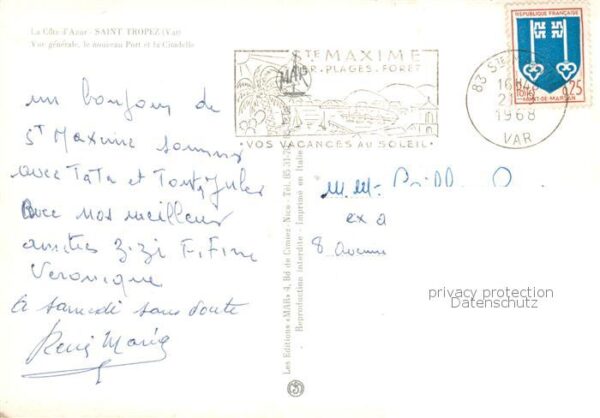 La Côte d'Azur - SAINT TROPEZ (Var)
Vue générale, le nouveau Port et la Citadelle
un bonjour de
St Maxime sommes
avec Tata et Tonton Jules
Avec nos meilleures
amitiés Zizi Fifine
Veronique
à samedi sans doute
René Maria
STE MAXIME
MER - PLAGES - FORET
VOS VACANCES AU SOLEIL
83 STE
16H45
2
1968
VAR
REPUBLIQUE FRANÇAISE
0,25
MONT-DE-MARSAN
Les Editions «MAR» 4, Bd de Cimiez Nice Tél. 85-31-7
Reproduction interdite - Imprimé en Italie
M. Mme
ex a
8 avenue
privacy protection
Datenschutz